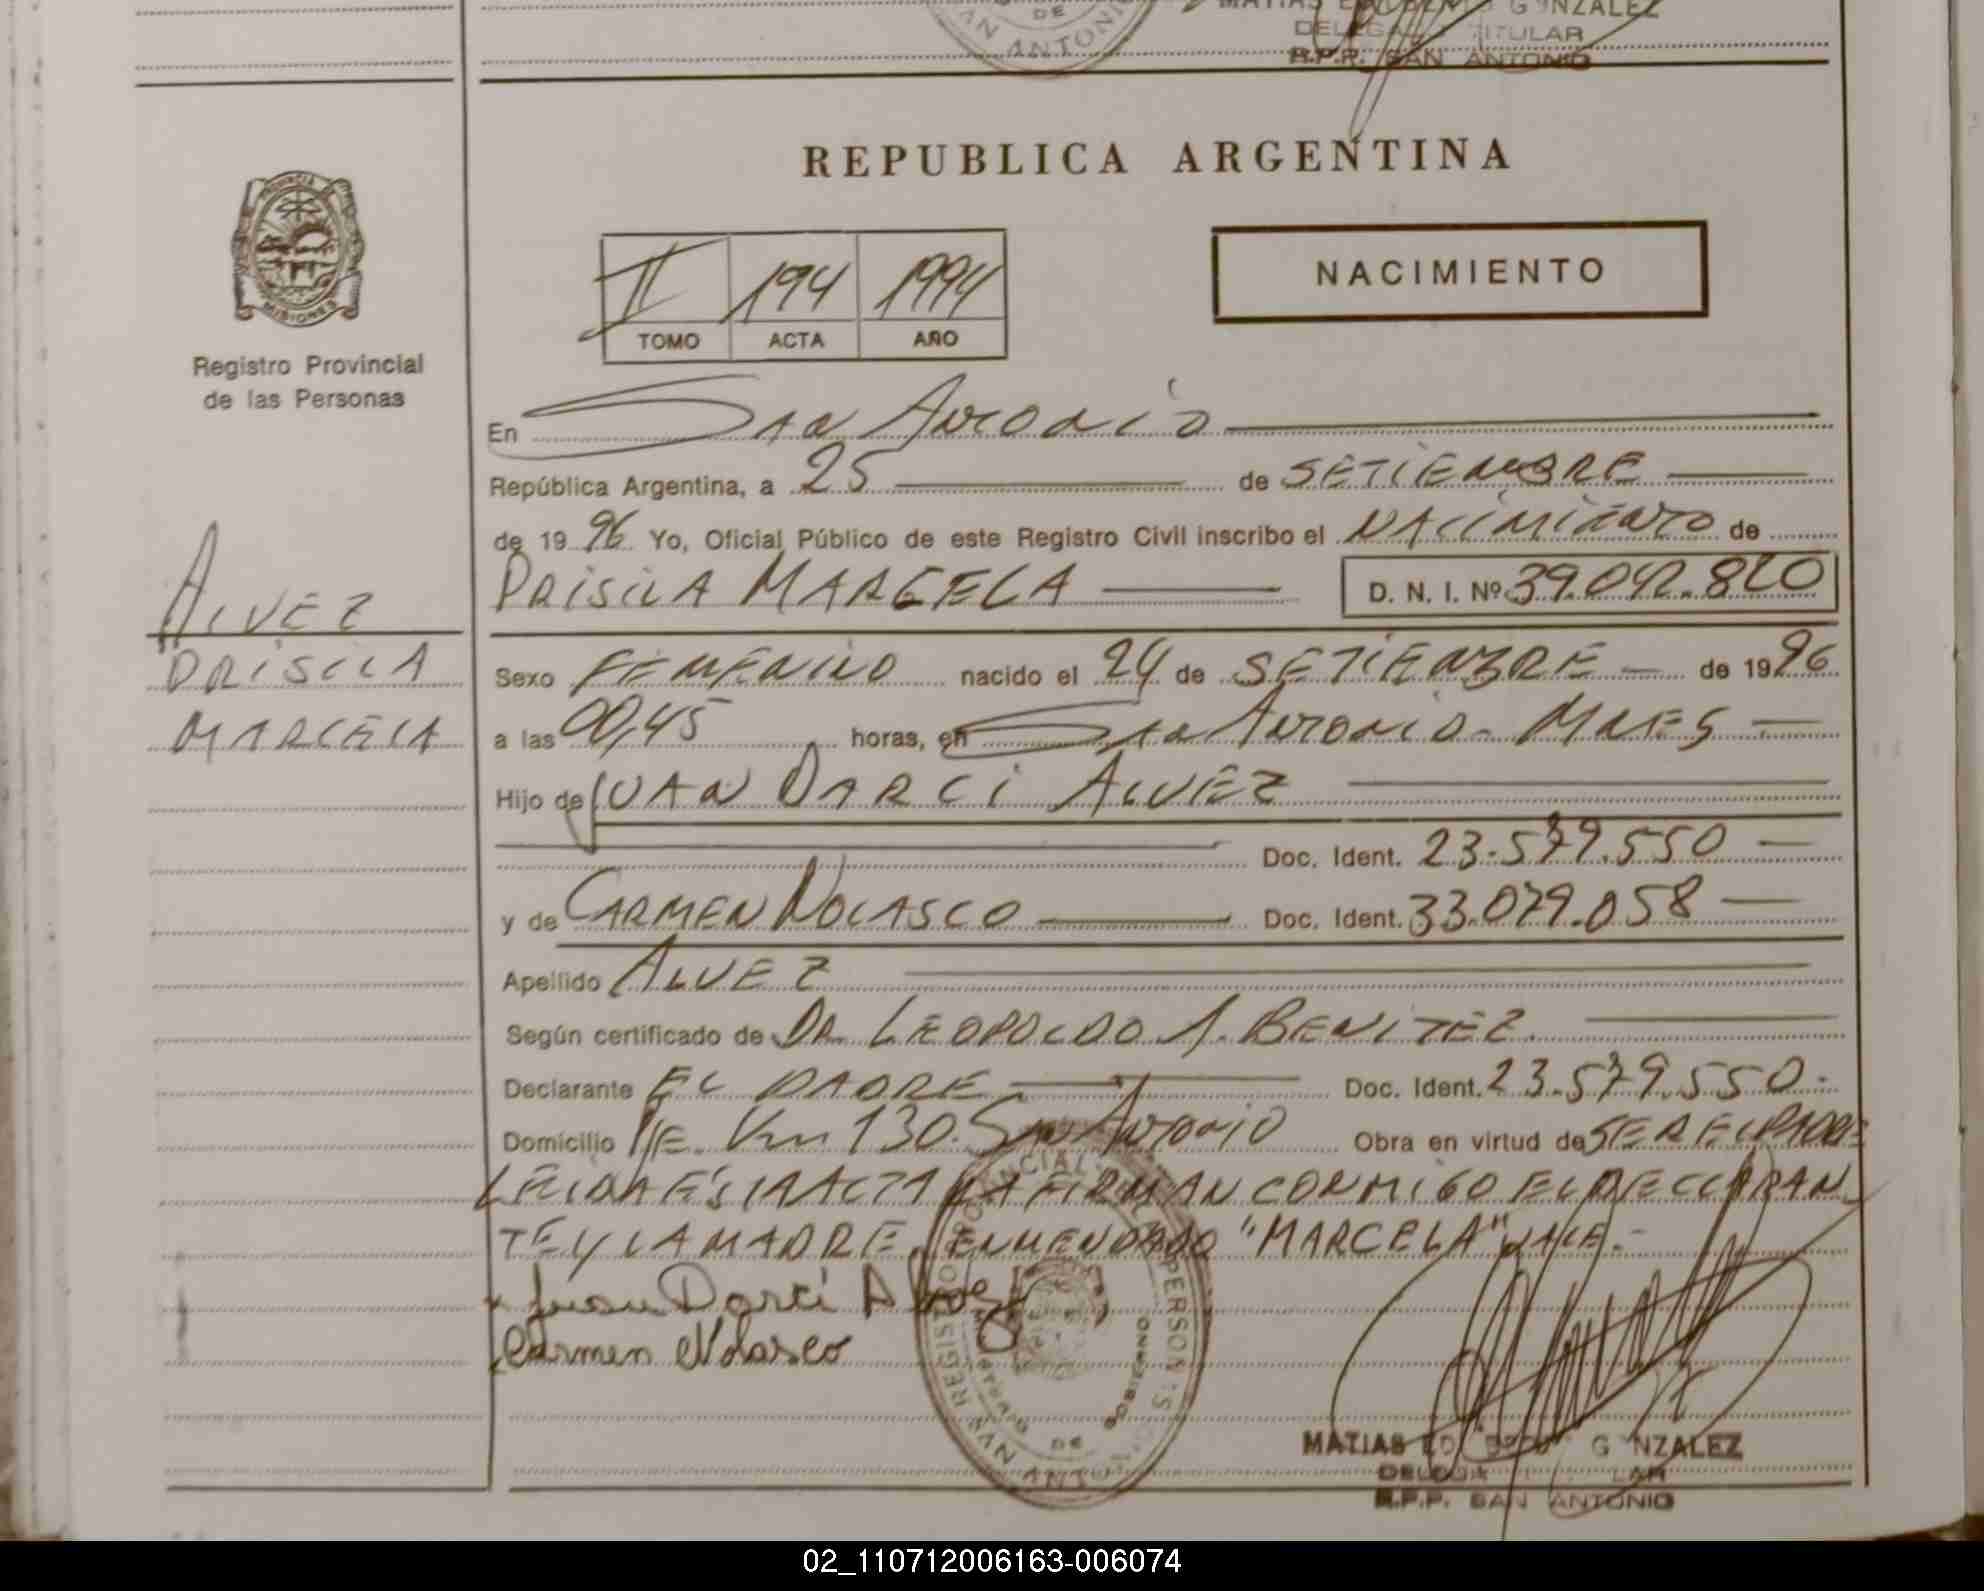 DE
SAN ANTONIO
DELEGADO TITULAR
R.P.R. SAN ANTONIO
REPUBLICA ARGENTINA
PROVINCIA
MISIONES
Registro Provincial
de las Personas
II 194 1994
TOMO ACTA AÑO
NACIMIENTO
En San Antonio
República Argentina, a 25 de SETIEMBRE
de 1996 Yo, Oficial Público de este Registro Civil inscribo el NACIMIENTO de
PRISILA MARCELA D. N. I. Nº 39.042.820
ALVEZ
PRISILA
MARCELA
Sexo FEMENINO nacido el 24 de SETIEMBRE de 1996
a las 00,45 horas, en San Antonio - MNES
Hijo de JUAN DARCI ALVEZ
Doc. Ident. 23.579.550
y de CARMEN NOLASCO Doc. Ident. 33.079.058
Apellido ALVEZ
Según certificado de DR. LEOPOLDO J. BENITEZ
Declarante EL PADRE Doc. Ident. 23.579.550.
Domicilio Km 130. San Antonio Obra en virtud de SER EL PADRE
LEIDA ESTA ACTA LA FIRMAN CONMIGO EL DECLARAN
TE Y LA MADRE. ENMENDADO "MARCELA" VALE.-
Juan Darci Alvez
Carmen Nolasco
MATIAS GONZALEZ
R.P.P. SAN ANTONIO
02_110712006163-006074